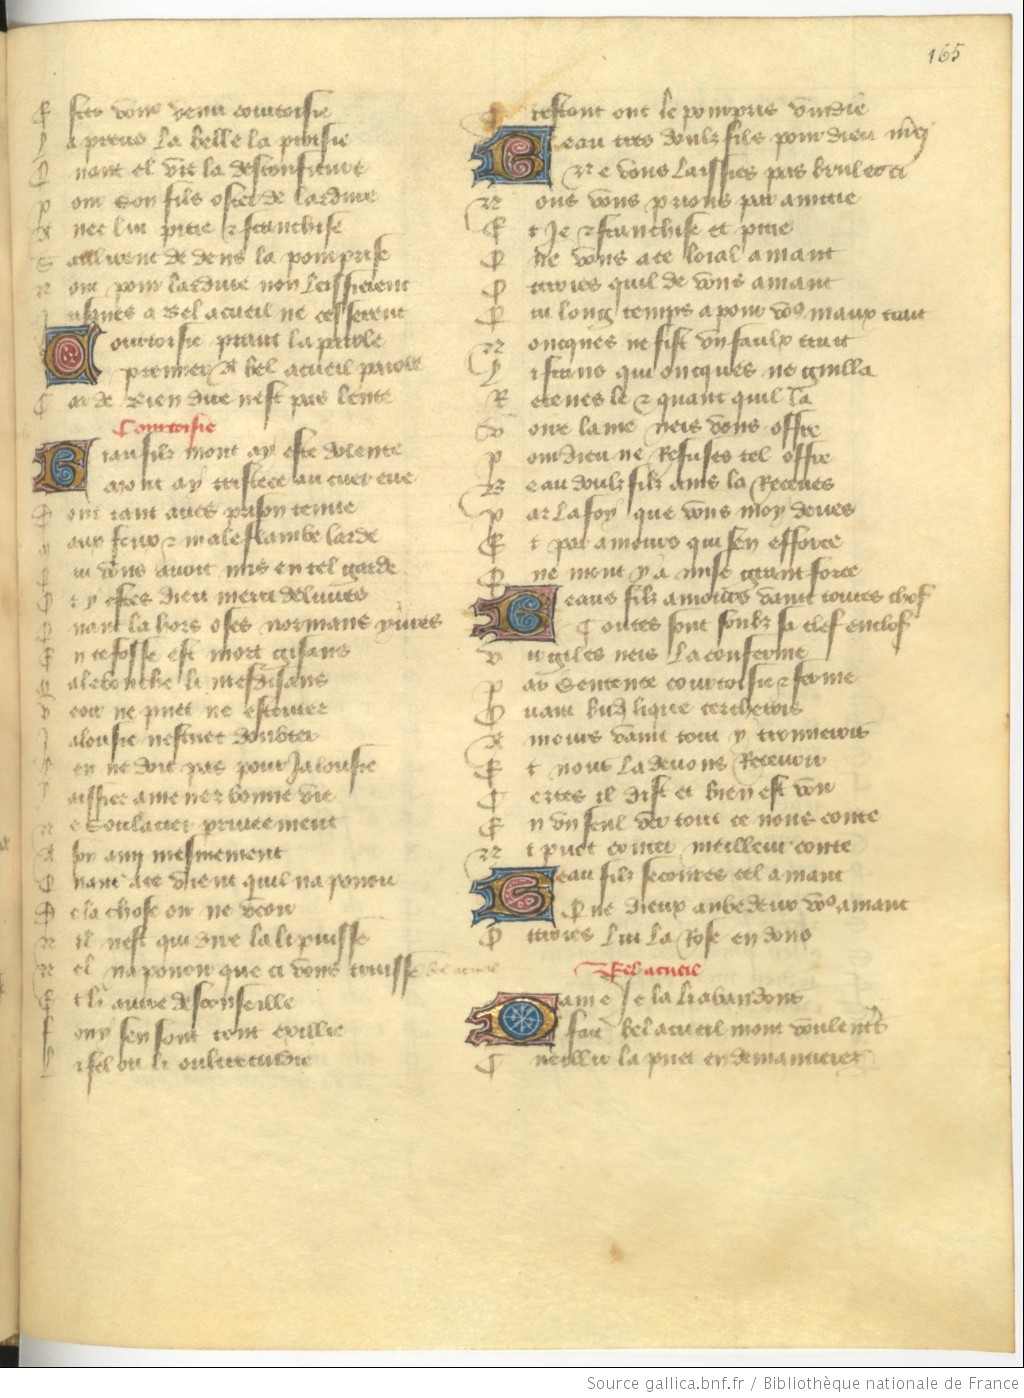 165
E stes vous venu courtoisie
L a preus la belle la prisie
Q uant el vit la desconfiture
P our son fils oster de lardure
A uec lui pitie & franchise
S aillirent de dens la pourprise
N ont pour lardure non laissierent
J usques a Bel acueil ne cesserent
C ourtoisie prant la parole
premier A bel acueil parole
C ar de bien dire nest pas lente
Courtoisie
B iau filz mont ay este dolente
Mont ay tristece au cuer eue
Q ont tant aues prison tenue
M aux feux & male flambe larde
Q ui vous auoit mis en tel garde
O r y estes dieu merci deliures
Q uant la hors o ses normans yures
E n ce fosse est mort gisans
M alebouche li mesdisans
V eoir ne puet ne escouter
J alousie nestuet doubter
L en ne doit pas pour Jalousie
L aissier amener bonne vie
N e Soulacier priueement
A son amy mesmement
Q uant ace vient quil na pouoir
D e la chose oir ne veoir
N il nest qui dire la li puisse
N el na pouoir que ci vous truisse
E t li autre desconseille
F ouy sen sont tout exillie
L i fel ou li oultrecuidie
T restout ont le pourpris vuidie
B eau tres doulz filz pour dieu mercy
Ne vous laissies pas bruler ci
N ous vous prions par amitie
E t Je & franchise et pitie
Q ue vous a ce loial amant
O ttroies quil de vous amant
Q ui long temps a pour vous maux trait
N oncques ne fist vn faulx trait
L i frans qui oncques ne guilla
R eceues le & quant quil la
V oire lame neis vous offre
P our dieu ne Refuses tel offre
B eau doulz filz ains la Receues
P ar la foy que vous moy deues
E t par amours qui sen efforce
Q ue mont y a mise grant force
B eaus filz amours vaint toutes chos
Toutes sont soubz sa clef enclos
V irgiles neis la conferme
P ar Sentence courtoise & ferme
Q uant bucolique cercheres
A mours vaint tout y trouueres
E t nous la deuons Receuoir
C ertes il dist et bien est voir
E n vn seul vers tout ce nous conte
N i puet conter meilleur conte
B eau filz secoures cel amant
Que dieux ambedeux vous amant
O ttroies lui la Rose en dons
Bel acueil
D ame Je la li abandons
Fait bel acueil mont voulentiers
C ueillir la puet endementiers